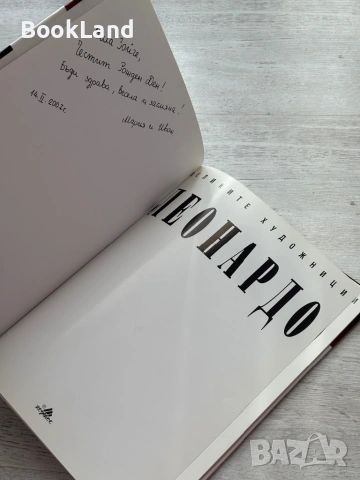 BookLand
Честит Рожден Ден!
Бъди здрава, весела и засмяна!
14.II.2002г.
Мария и Иван
ВЕЛИКИТЕ ХУДОЖНИЦИ
ЛЕОНАРДО
BAZAR